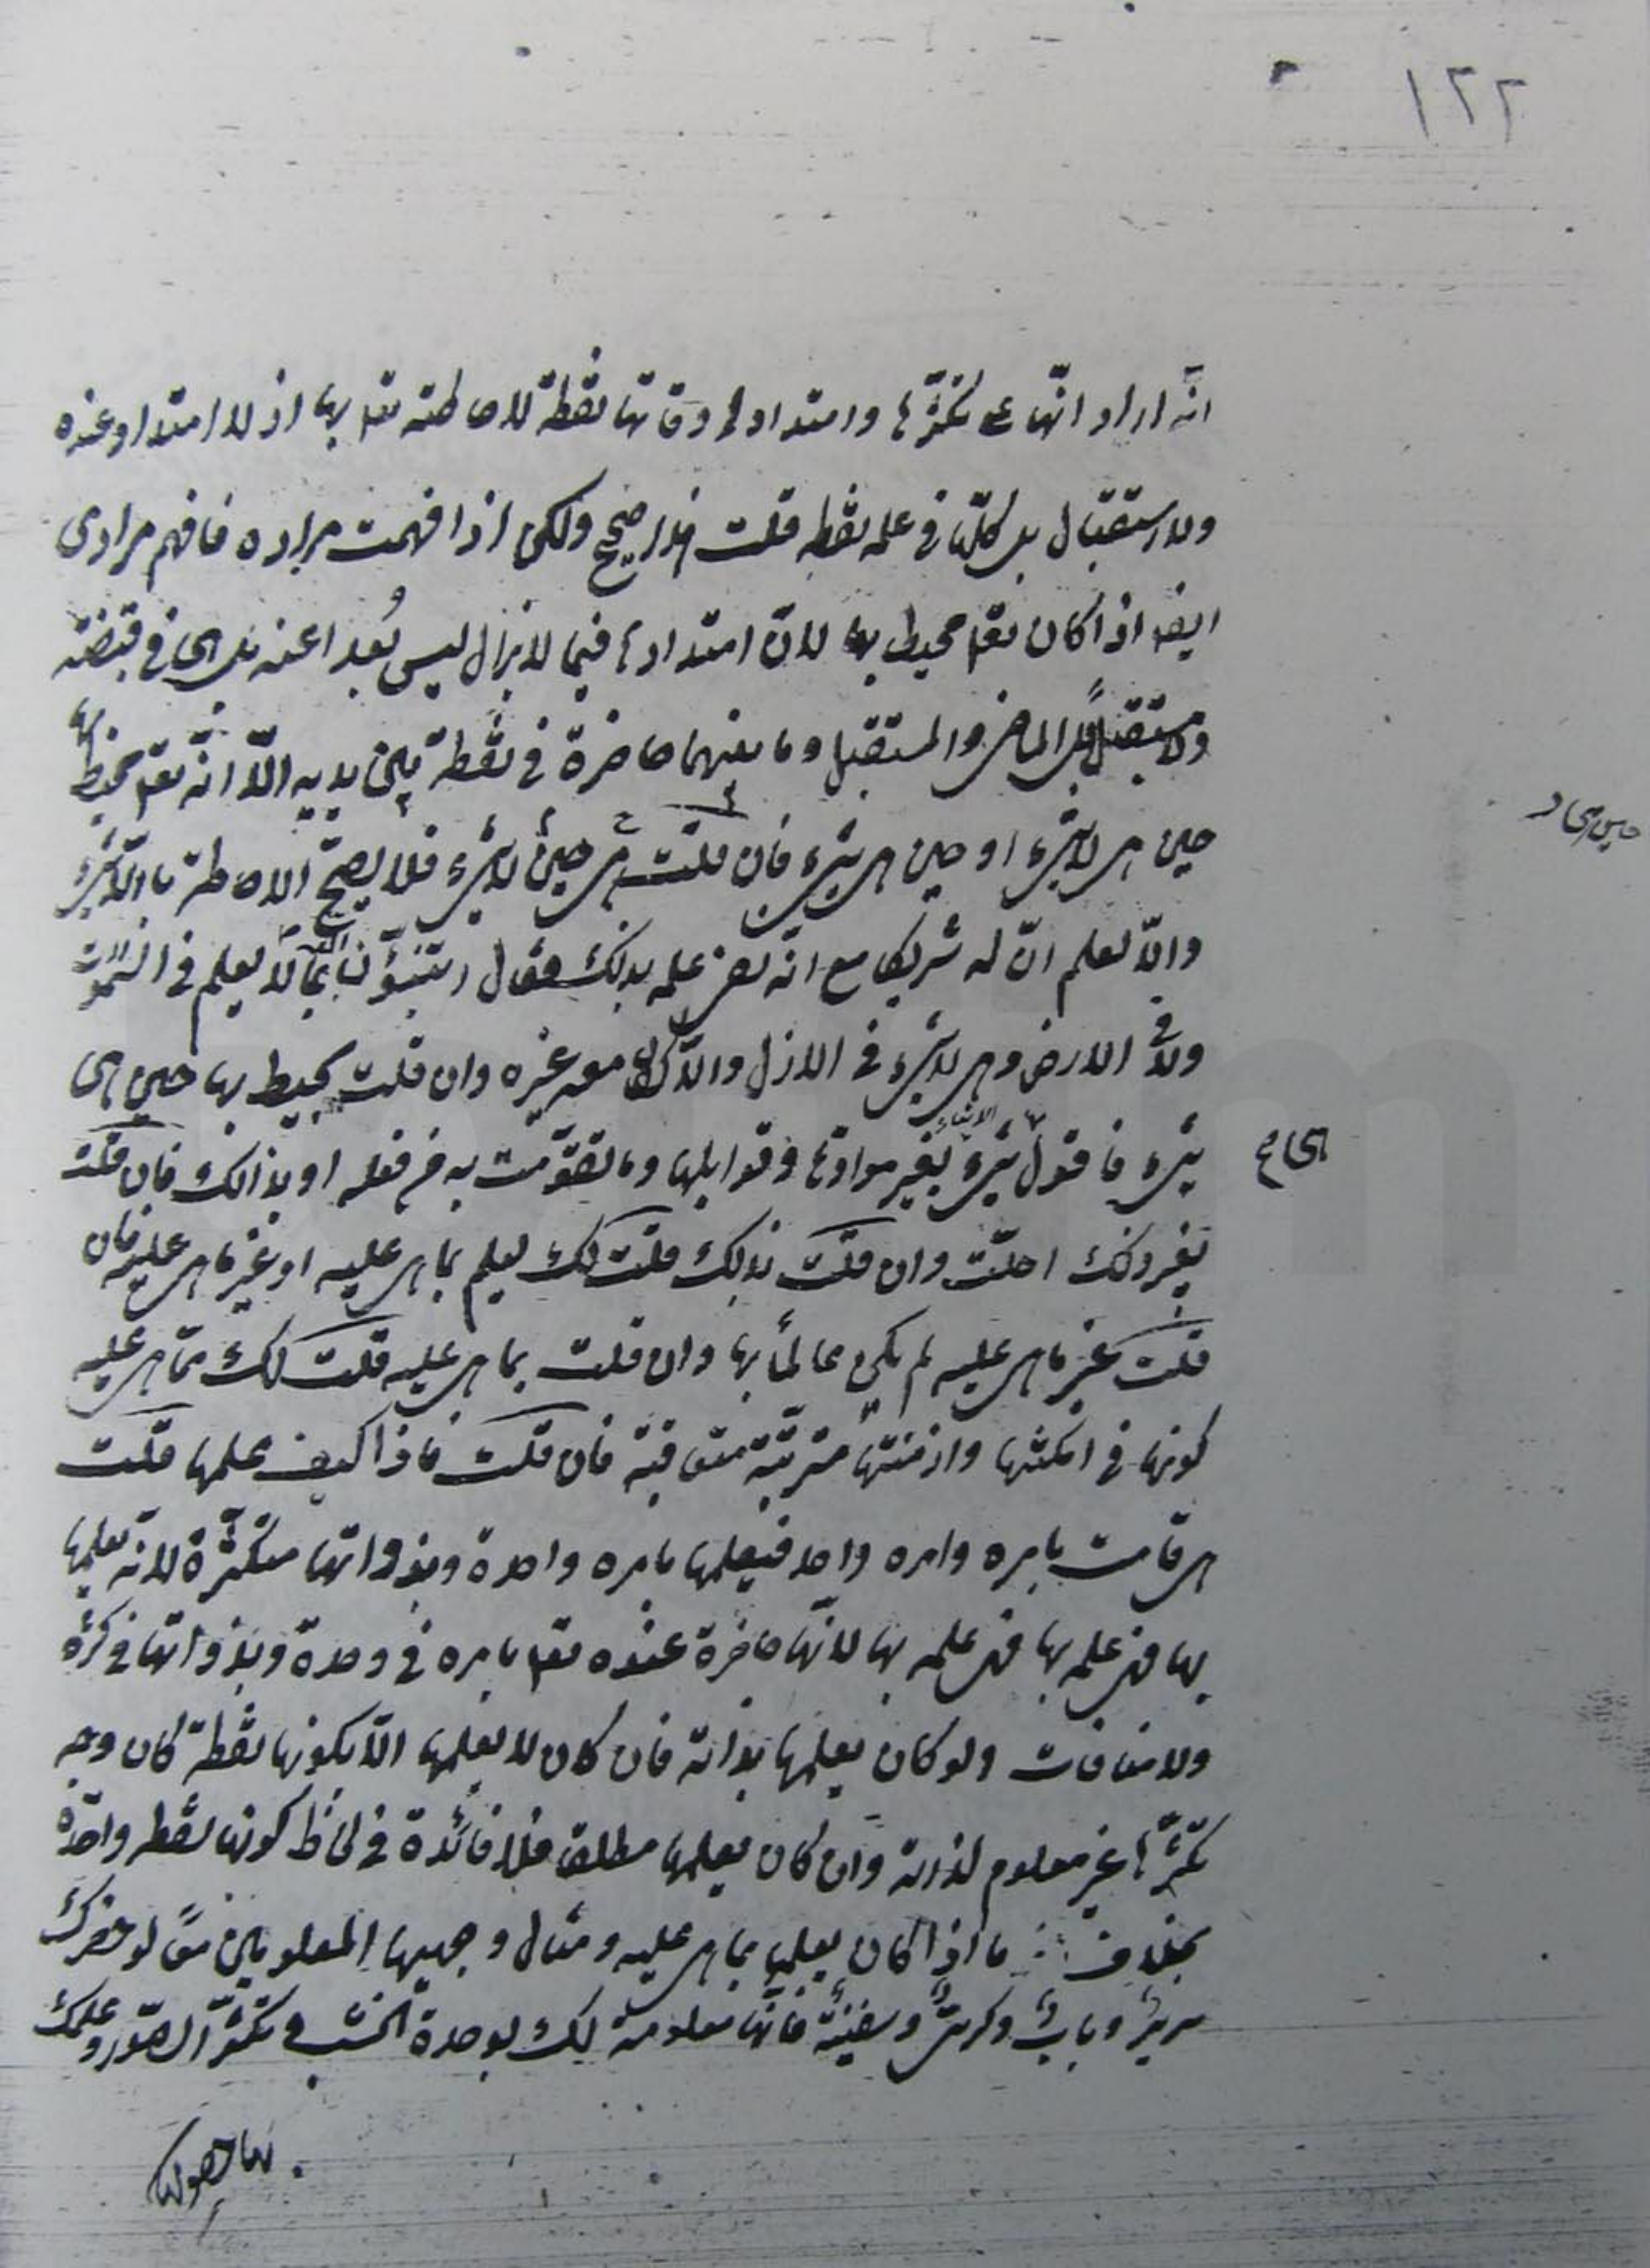 ١٢٢
انّه اراد انّها على تكثّرها وامتداد اوقاتها نقطة للاحاطته تعا بها اذ لا امتداد عنده
ولا استقبال بل كلّها فى علمه نقطه قلت هذا صحيح ولكن اذا فهمت مراده فافهم مرادى
ايضا اذا كان تعا محيط بها لانّ امتدادها فيما لا يزال ليس بُعدا عنه بل هى فى قبضته
ولا مستقبلٌ بل الماضى والمستقبل وما بينهما حاضرة فى نقطة بين يديه الّا انّه تعا محيط بها
حين هى لا شىء او حين هى شىء فان قلت هى حين لا شىء فلا يصحّ الاحاطة باللّاشىء
والّا لعلم انّ له شريكا مع انّه نفى علمه بذلك فقال اتنبّؤن اللّه بما لا يعلم فى السّموات
ولا فى الارض وهى لا شىء فى الازل والّا لكان معه غيره وان قلت يحيط بها حين هى
شىء فاقول شىء بغير موادّها وقوابلها وما تقوّمت به من فعله او بذالك فان قلت
بغير ذلك احلت وان قلت بذلك قلت لك يعلم بما هى عليه او غير ما هى عليه فان
قلت غير ما هى عليه لم يكن عالماً بها وان قلت بما هى عليه قلت لك ممّا هى عليه
كونها فى امكنتها وازمنتها مترتّبة متعاقبة فان قلت فاذا كيف علمها قلت
هى قامت بامره وامره واحد فيعلمها بامره واحدة وبذواتها متكثّرة لانّه يعلمها
بها فهى علمه بها فهى علمه بها لانّها حاضرة عنده تعا بامره فى وحدة وبذواتها فى كثرة
ولا منافات ولو كان يعلمها بذاته فان كان لا يعلمها الّا بكونها نقطة كان وجه
تكثّرها غير معلوم لذاته وان كان يعلمها مطلقا فلا فائدة فى لحاظ كونها نقطه واحدة
بخلاف ما اذا كان يعلمها بما هى عليه ومثال وجهيها المعلومين معًا لو حضرك
سريرٌ وبابٌ وكرسىٌّ وسفينةٌ فانّها معلومة لك بوحدة الخشب فى تكثّر الصّور وعلمك
بها حصولها